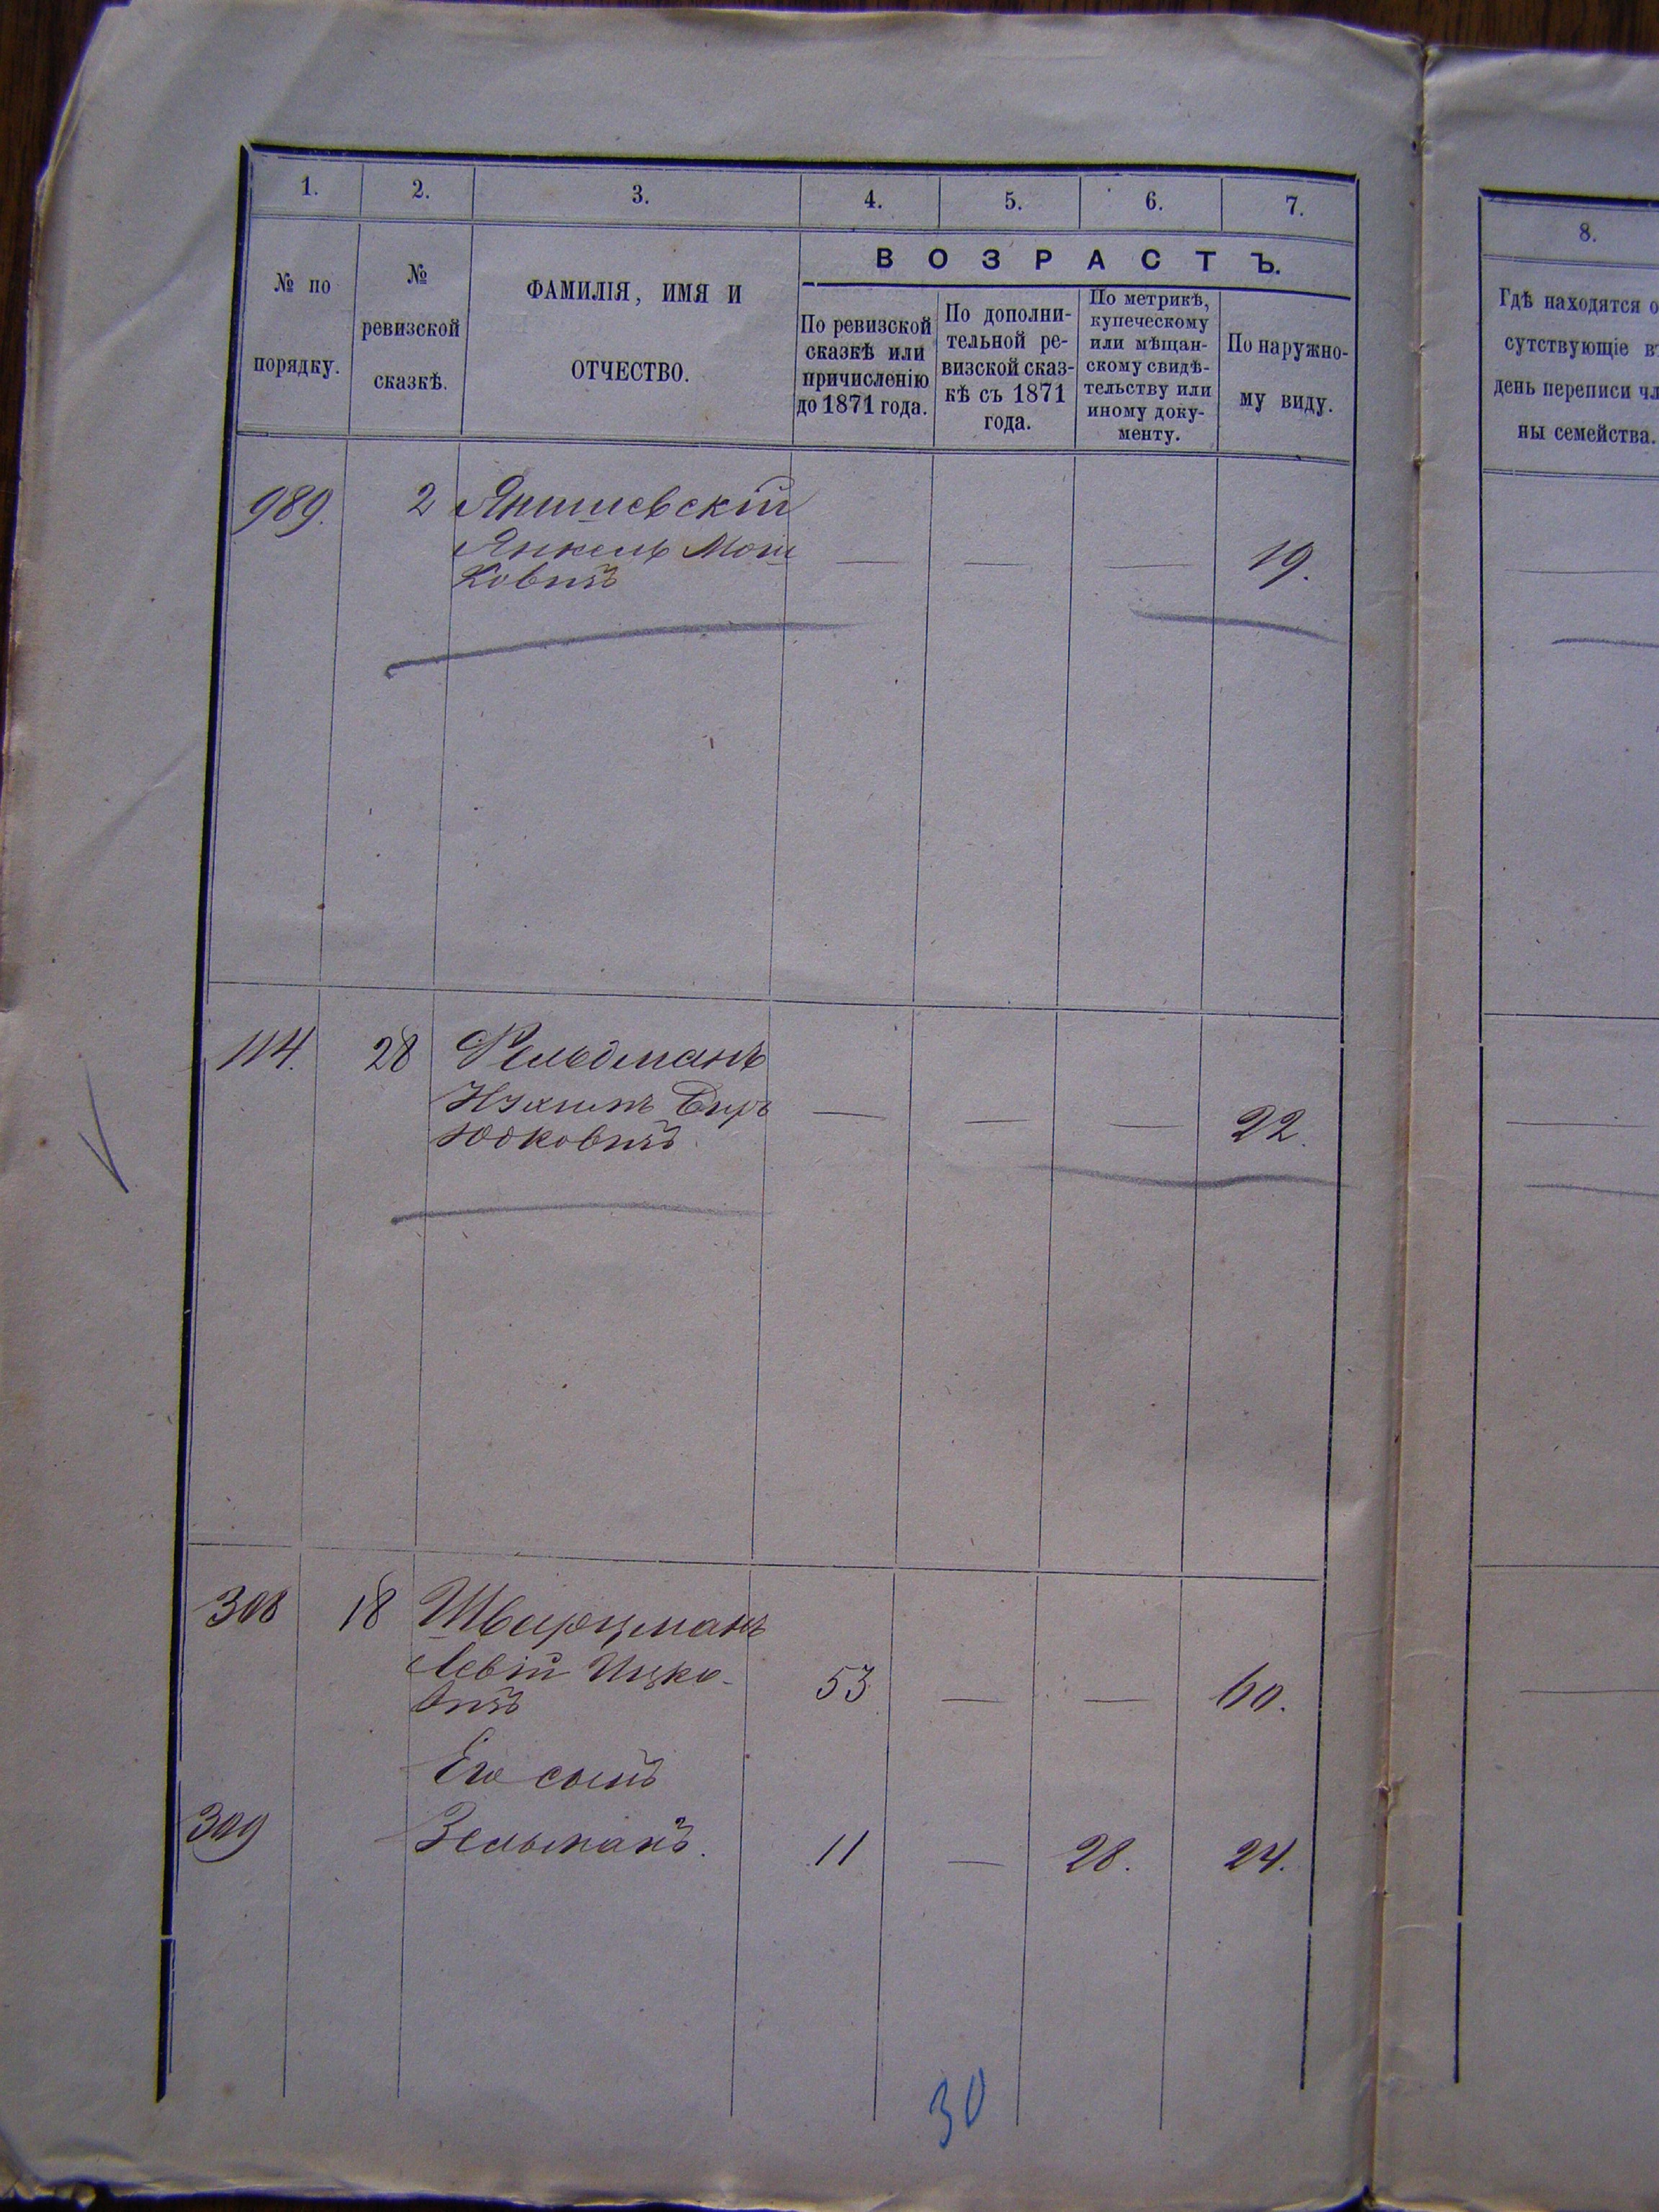 1. 2. 3. 4. 5. 6. 7.
№ по порядку.
№ ревизской сказкѣ.
ФАМИЛІЯ, ИМЯ И
ОТЧЕСТВО.
ВОЗРАСТЪ.
По ревизской
сказкѣ или
причисленію
до 1871 года.
По дополни-
тельной ре-
визской сказ-
кѣ съ 1871
года.
По метрикѣ,
купеческому
или мѣщан-
скому свидѣ-
тельству или
иному доку-
менту.
По наружно-
му виду.
989. 2 Янишевскій
Янкель Мош
ковичъ — — — 19.
114. 28 Фельдманъ
Нухимъ Беръ — — — 22.
Юдковичъ
308 18 Шварцманъ
Левій Ицко- 53 — — 60.
вичъ
Его сынъ
309 Зельманъ. 11 — 28. 24.
30
8.
Гдѣ находятся о
сутствующіе в
день переписи чл
ны семейства.